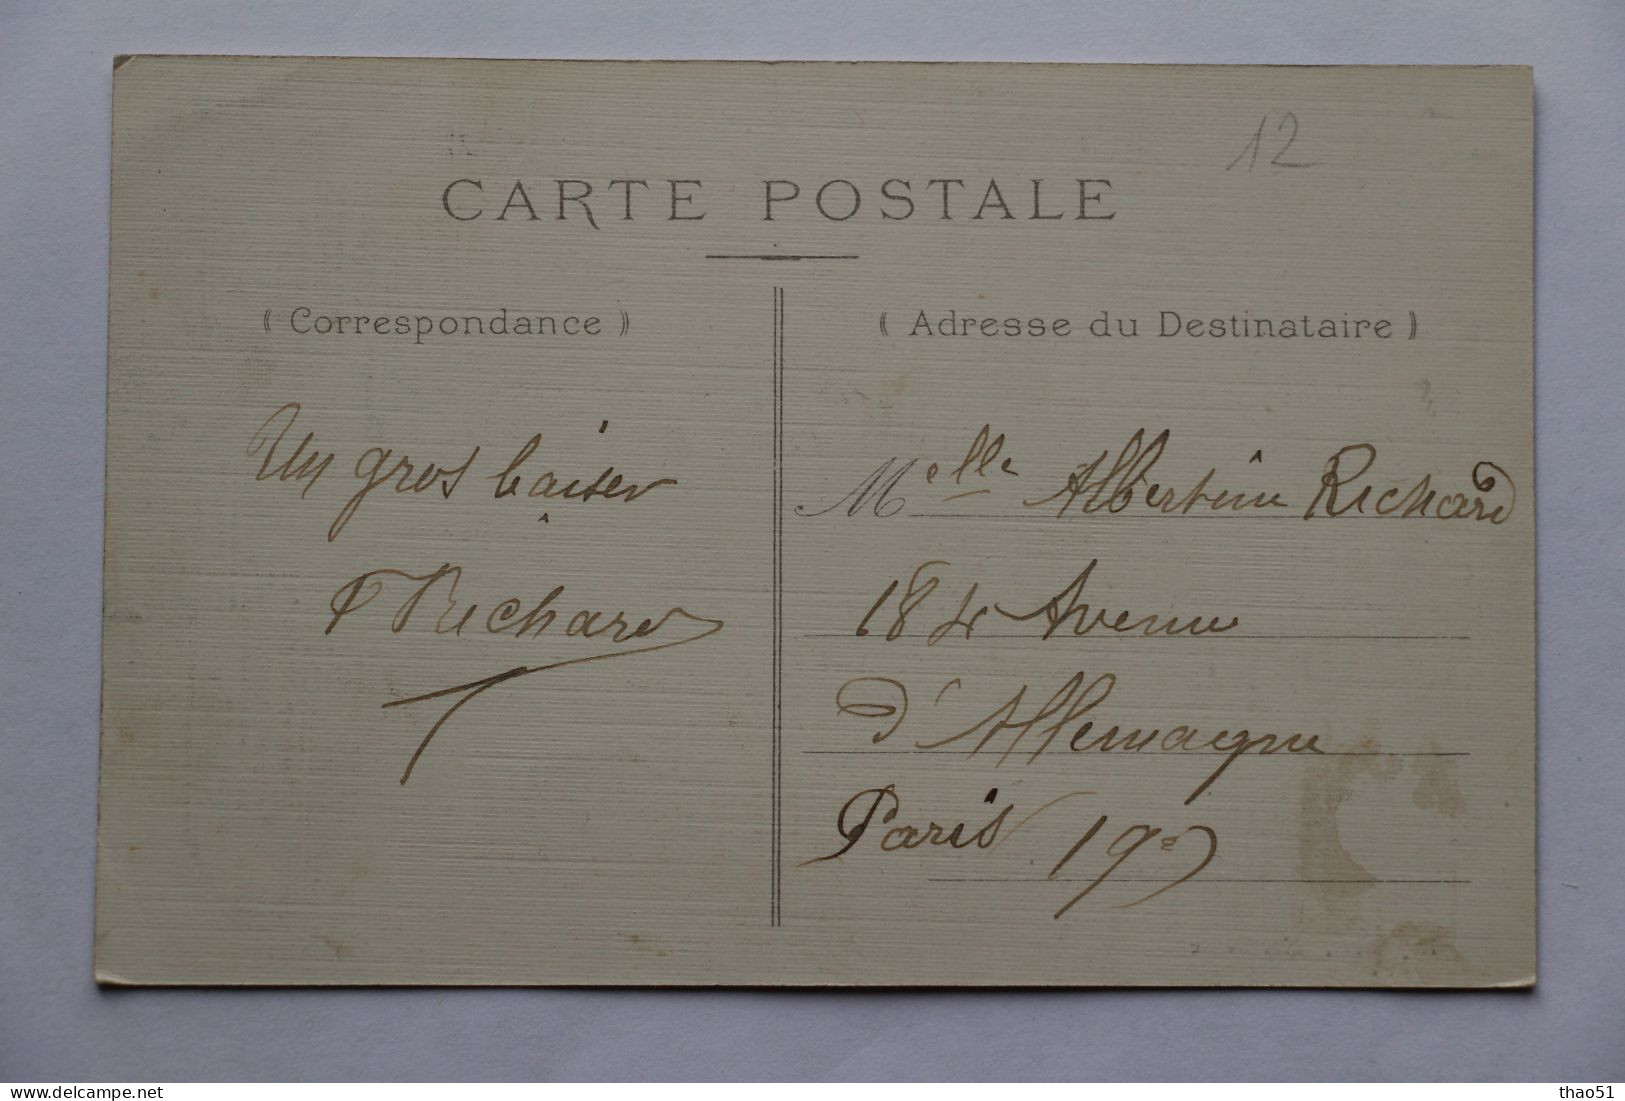 12
CARTE POSTALE
( Correspondance )
( Adresse du Destinataire )
Un gros baiser
F Richard
Melle Albertine Richard
184 Avenue
d'Allemagne
Paris 19e
Delcampe.net
thao51